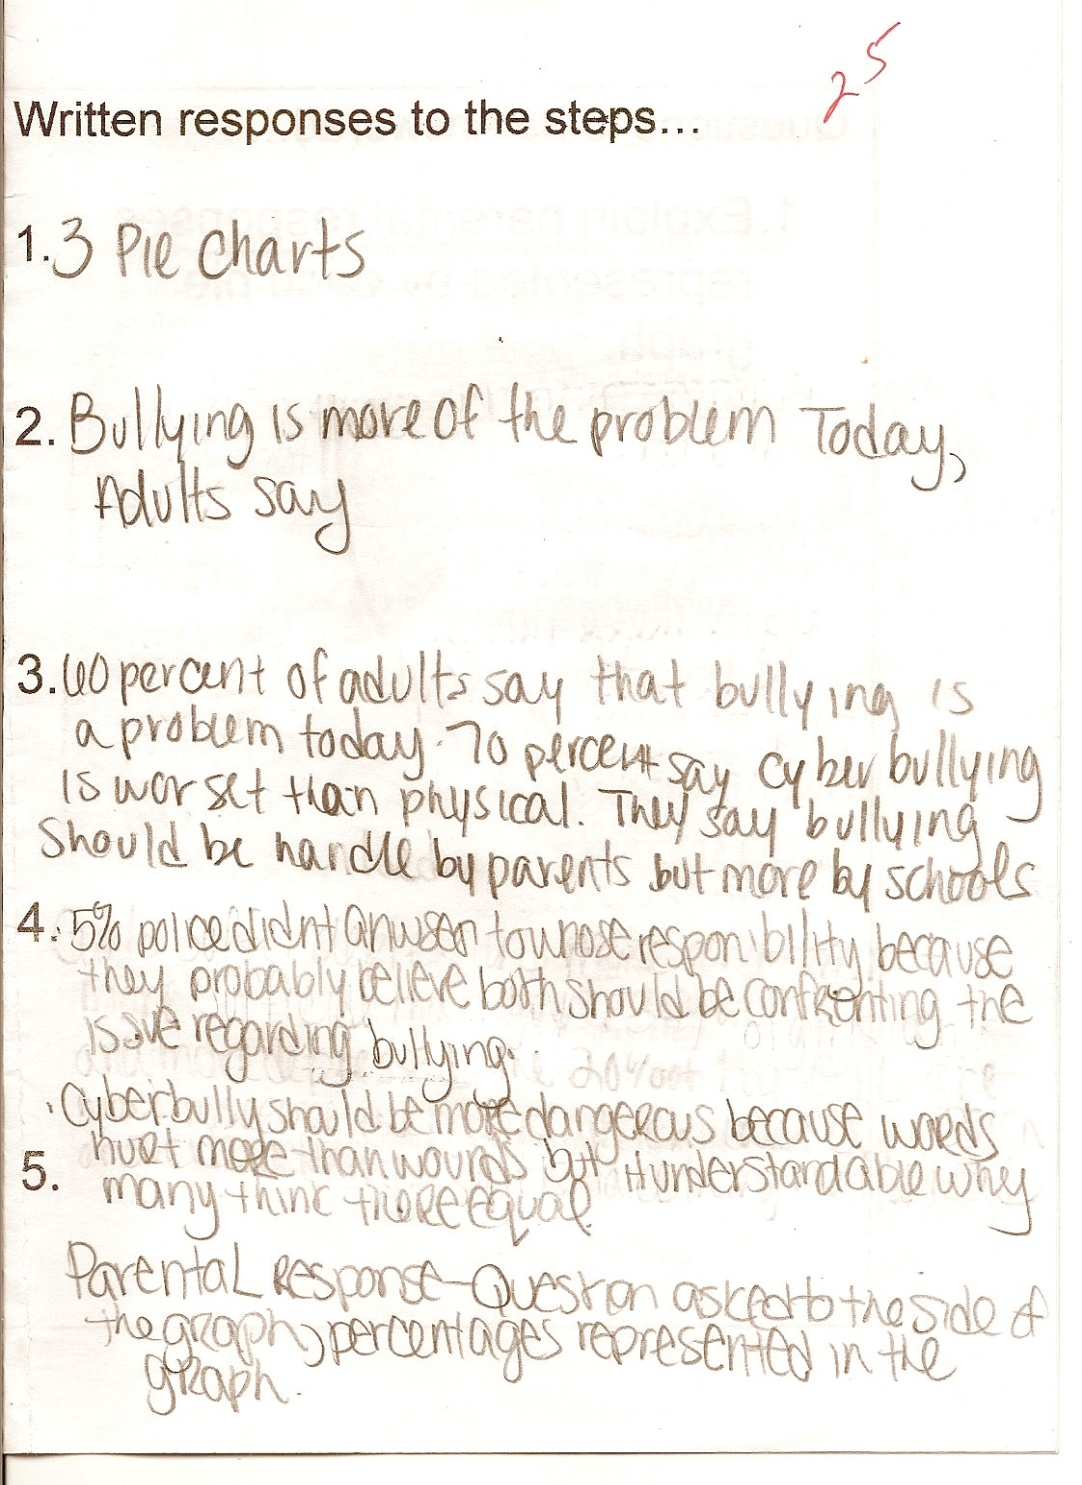 25
Written responses to the steps...
1. 3 Pie charts
2. Bullying is more of the problem Today,
Adults say
3. 60 percent of adults say that bullying is
a problem today. 70 percent say cyber bullying
is worset than physical. They say bullying
should be handle by parents but more by schools
4. 5% police didnt anwser to whose responibility because
they probably believe both should be confronting the
issue regarding bullying.
. Cyberbully should be more dangerous because words
hurt more than wounds but it understandable why
5. many think there equal.
Parental Response - Question asked to the side of
the graph, percentages represented in the
graph.